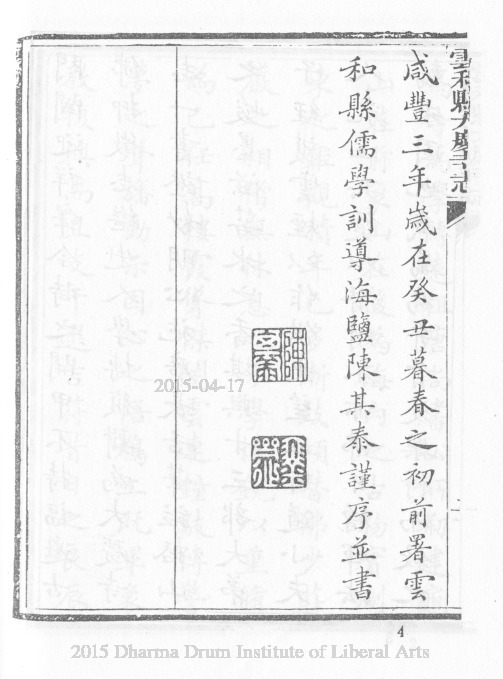 咸豐三年歲在癸丑暮春之初前署雲
和縣儒學訓導海鹽陳其泰謹序並書
2015-04-17
4
2015 Dharma Drum Institute of Liberal Arts